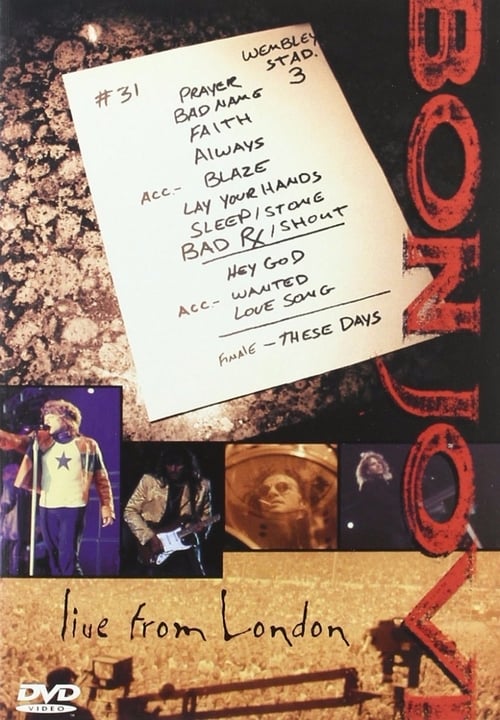 WEMBLEY
STAD.
3
#31
PRAYER
BAD NAME
FAITH
ALWAYS
ACC- BLAZE
LAY YOUR HANDS
SLEEP/STONE
BAD RX/SHOUT
HEY GOD
ACC- WANTED
LOVE SONG
FINALE - THESE DAYS
BON JOVI
live from London
DVD
VIDEO